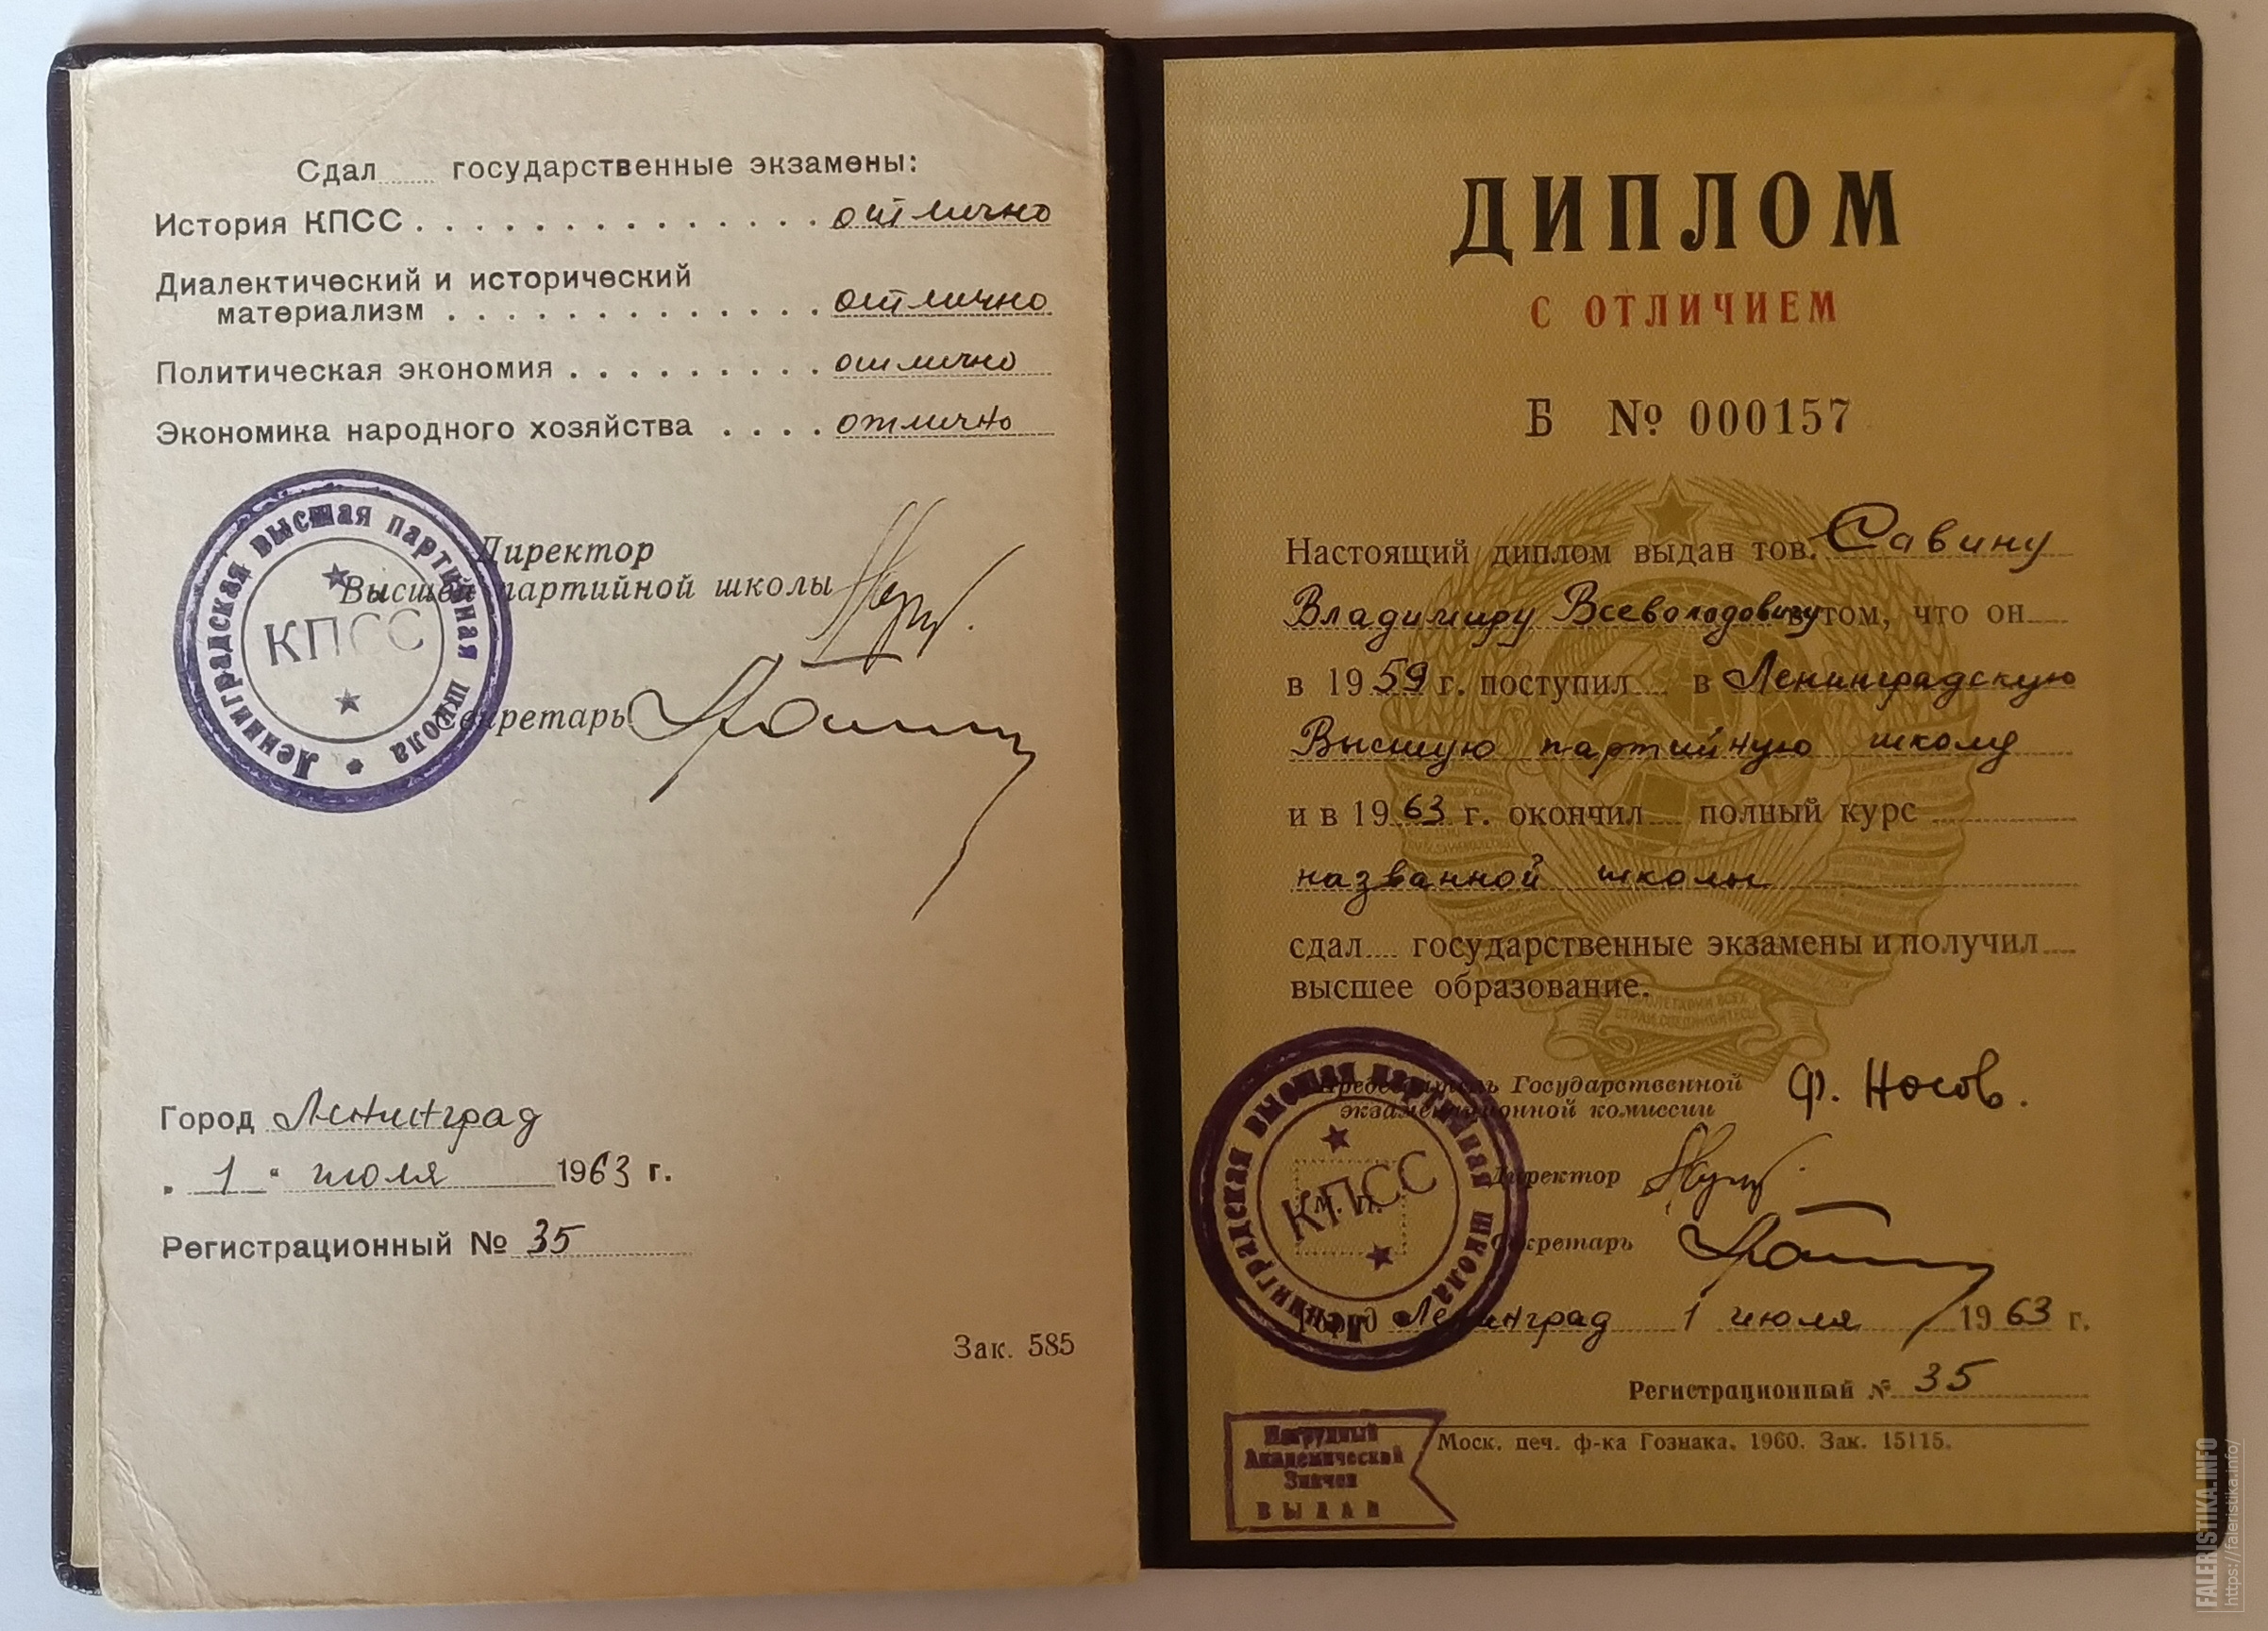 Сдал государственные экзамены:
История КПСС . . . . . . . . . . . . . . отлично
Диалектический и исторический
материализм . . . . . . . . . . . . . отлично
Политическая экономия . . . . . . . . . отлично
Экономика народного хозяйства . . . . отлично
Директор
Высшей партийной школы
Секретарь
Ленинградская высшая партийная школа
КПСС
Город Ленинград
„ 1 “ июля 1963 г.
Регистрационный № 35
Зак. 585
ДИПЛОМ
С ОТЛИЧИЕМ
Б № 000157
Настоящий диплом выдан тов. Савину
Владимиру Всеволодовичу в том, что он
в 1959 г. поступил в Ленинградскую
Высшую партийную школу
и в 1963 г. окончил полный курс
названной школы
сдал государственные экзамены и получил
высшее образование.
Председатель Государственной
экзаменационной комиссии Ф. Носов.
Директор
Секретарь
Ленинградская высшая партийная школа
КПСС
М. П.
Город Ленинград 1 июля 1963 г.
Регистрационный № 35
Моск. печ. ф-ка Гознака. 1960. Зак. 15115.
Нагрудный
Академический
Значок
ВЫДАН
FALERISTIKA.INFO
https://faleristika.info/